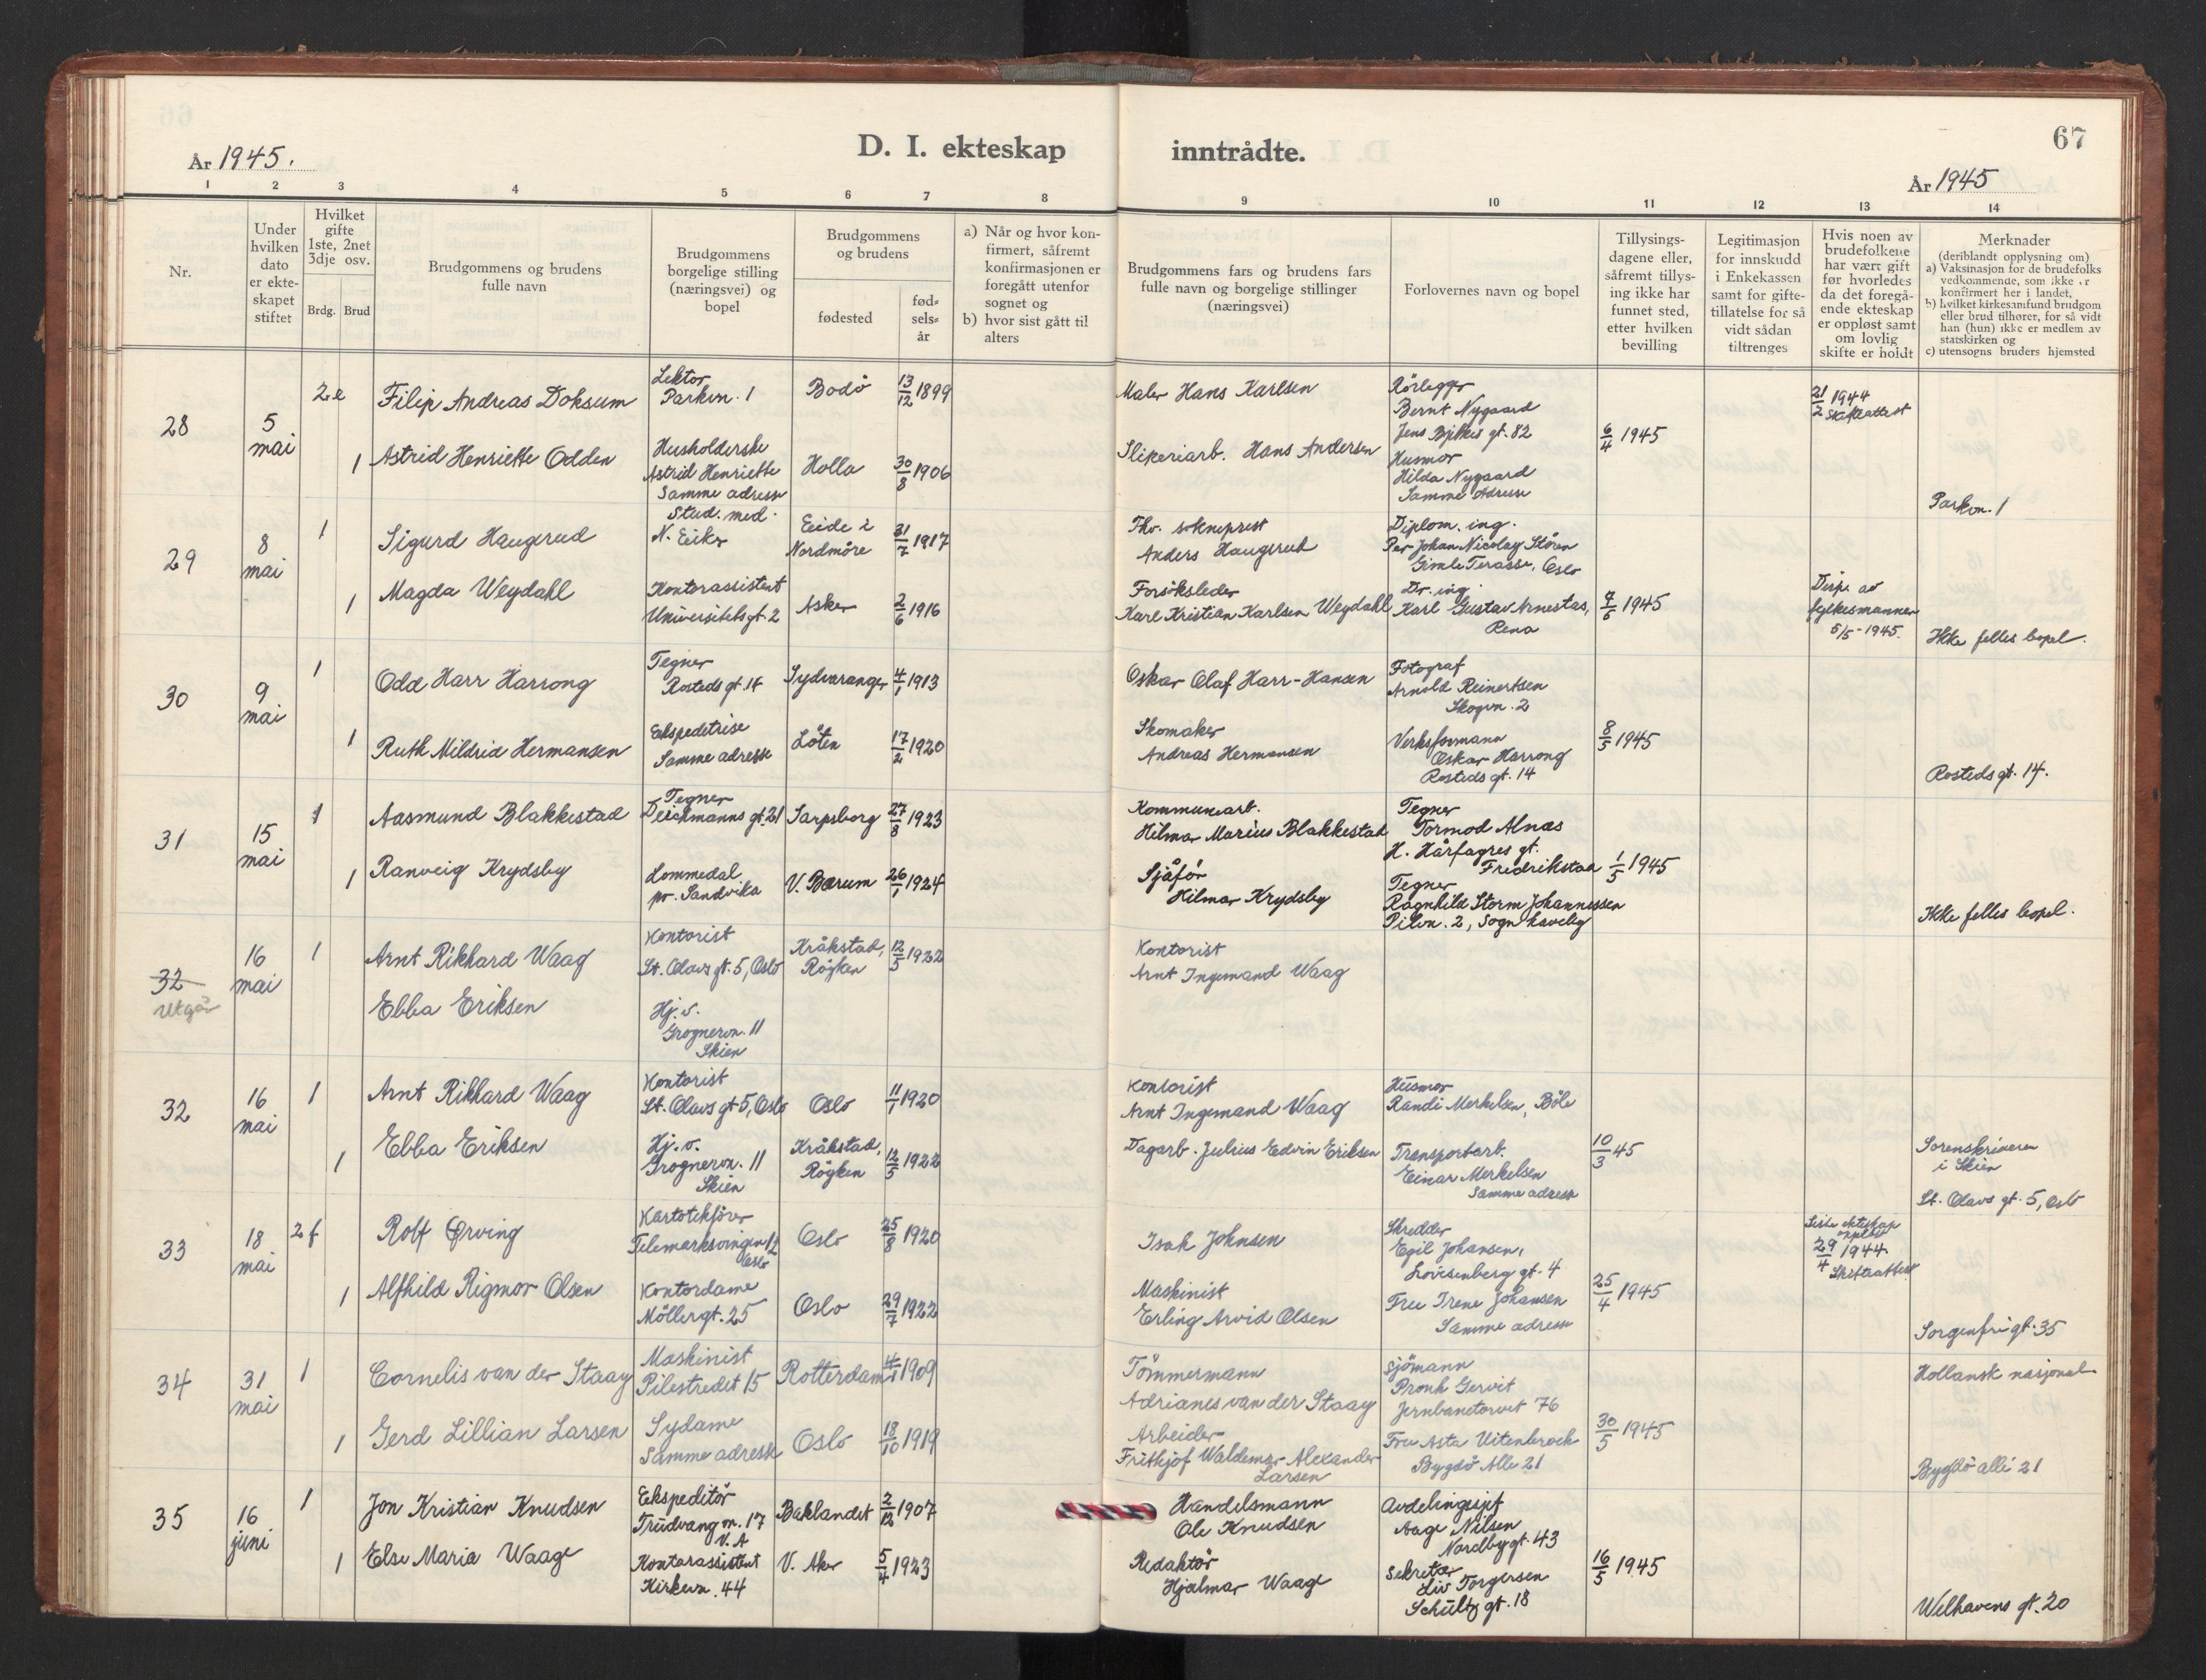 67
År 1945.
D. I. ekteskap inntrådte.
År 1945
1 2 3 4 5 6 7 8 9 10 11 12 13 14
Nr.
Under hvilken dato er ekteskapet stiftet
Hvilket gifte 1ste, 2net 3dje osv.
Brdg. Brud
Brudgommens og brudens fulle navn
Brudgommens borgelige stilling (næringsvei) og bopel
Brudgommens og brudens
fødested
fødselsår
a) Når og hvor konfirmert, såfremt konfirmasjonen er foregått utenfor sognet og
b) hvor sist gått til alters
Brudgommens fars og brudens fars fulle navn og borgelige stillinger (næringsvei)
Forlovernes navn og bopel
Tillysingsdagene eller, såfremt tillysing ikke har funnet sted, etter hvilken bevilling
Legitimasjon for innskudd i Enkekassen samt for giftetillatelse for så vidt sådan tiltrenges
Hvis noen av brudefolkene har vært gift før hvorledes da det foregående ekteskap er oppløst samt om lovlig skifte er holdt
Merknader
(deriblandt opplysning om)
a) Vaksinasjon for de brudefolks vedkommende, som ikke er konfirmert her i landet,
b) hvilket kirkesamfund brudgom eller brud tilhører, for så vidt han (hun) ikke er medlem av statskirken og
c) utensogns bruders hjemsted
28
5 mai
2 e
Filip Andreas Doksum
Lektor
Parkvn. 1
Bodö
13/12 1899
Maler Hans Karlsen
Rörlegger
Bernt Nygaard
Jens Bjelkes gt. 82
21/2 1944
Skifteattest
1
Astrid Henriette Odden
Husholderske
Astrid Henriette
Samme adresse
Holla
30/8 1906
Sliperiarb. Hans Andersen
Husmor
Hilda Nygaard
Samme Adresse
6/4 1945
Parkvn. 1
29
8 mai
1
Sigurd Haugerud
Stud. med.
N. Eiker
Eeide i
Nordmöre
31/7 1917
Fhv. sokneprest
Anders Haugerud
Diplom. ing.
Per Johan Nicolay Stören
Gimle Terasse, Oslo
1
Magda Weydahl
Kontorassistent
Universitetsgt. 2
Asker
2/6 1916
Forsöksleder
Karl Kristian Karlsen Weydahl
Dr. ing.
Karl Gustav Arnestas,
Rena
7/5 1945
Disp. av
fylkesmannen
5/5-1945.
Ikke felles bopel.
30
9 mai
1
Odd Harr Harrong
Tegner
Rosteds gt. 14
Sydvaranger
4/1 1913
Oskar Olaf Harr-Hansen
Fotograf
Arnold Reinertsen
Skogvn. 2
1
Ruth Mildrid Hermansen
Ekspeditrise
Samme adresse
Löten
17/2 1920
Skomaker
Andreas Hermansen
Verksformann
Oskar Harrong
Rosteds gt. 14
8/5 1945
Rosteds gt. 14.
31
15 mai
1
Aasmund Blakkestad
Tegner
Deichmanns gt. 21
Sarpsborg
27/8 1923
Kommunearb.
Hilmar Marius Blakkestad
Tegner
Tormod Alnæs
H. Hårfagres gt.
Fredrikstad
1
Ranveig Krydsby
Lommedal
pr. Sandvika
V. Bærum
26/1 1924
Sjåför
Hilmar Krydsby
Tegner
Ragnhild Storm Johannessen
Pilvn. 2, Sogn haveby
1/5 1945
Ikke felles bopel.
32
Utgår
16 mai
1
Arnt Rikhard Waag
Kontorist
St. Olavs gt. 5, Oslo
Kråkstad,
Röyken
12/5 1922
Kontorist
Arnt Ingemand Waag
Ebba Eriksen
Hj. v.
Grognervn. 11
Skien
32
16 mai
1
Arnt Rikhard Waag
Kontorist
St. Olavs gt 5, Oslo
Oslo
11/1 1920
Kontorist
Arnt Ingemand Waag
Husmor
Randi Merkelsen, Böle
1
Ebba Eriksen
Hj. v.
Grognervn. 11
Skien
Kråkstad,
Röyken
12/5 1922
Dagarb. Julius Edvin Eriksen
Transportarb.
Einar Merkelsen
Samme adresse
10/3 45
Sorenskriveren
i Skien
St. Olavs gt. 5, Oslo
33
18 mai
2 f
Rolf Ørving
Kartotekförer
Telemarksvingen 12
Oslo
Oslo
25/8 1920
Isak Johnsen
Skredder
Egil Johansen,
Lovisenberg gt. 4
Siste ekteskap
opplöst
29/4 1944.
Skifteattest
1
Alfhild Rigmor Olsen
Kontordame
Möllergt. 25
Oslo
29/7 1922
Maskinist
Erling Arvid Olsen
Fru Irene Johansen
Samme adresse
25/4 1945
Sorgenfrigt. 35
34
31 mai
1
Cornelis van der Staay
Maskinist
Pilestredet 15
Rotterdam
4/1 1909
Tömmermann
Adrianes van der Staay
Sjömann
Pronk Gervit
Jernbanetorvet 76
Hollansk nasjonal
1
Gerd Lillian Larsen
Sydame
Samme adresse
Oslo
18/10 1919
Arbeider
Frithjof Waldemar Alexander
Larsen
Fru Asta Uitenbroek
Bygdö Alle 21
30/5 1945
Bygdö alle 21
35
16 juni
1
Jon Kristian Knudsen
Ekspeditör
Trudvang vn. 17
V. A
Baklandet
2/12 1907
Handelsmann
Ole Knudsen
Avdelingsjef
Aage Nilsen
Nordbygt. 43
1
Else Maria Waage
Kontorassistent
Kirkevn. 44
V. Aker
5/4 1923
Redaktör
Hjalmar Waage
Sekretær
Liv Torgersen
Schultz gt. 18
16/5 1945
Welhavens gt. 20